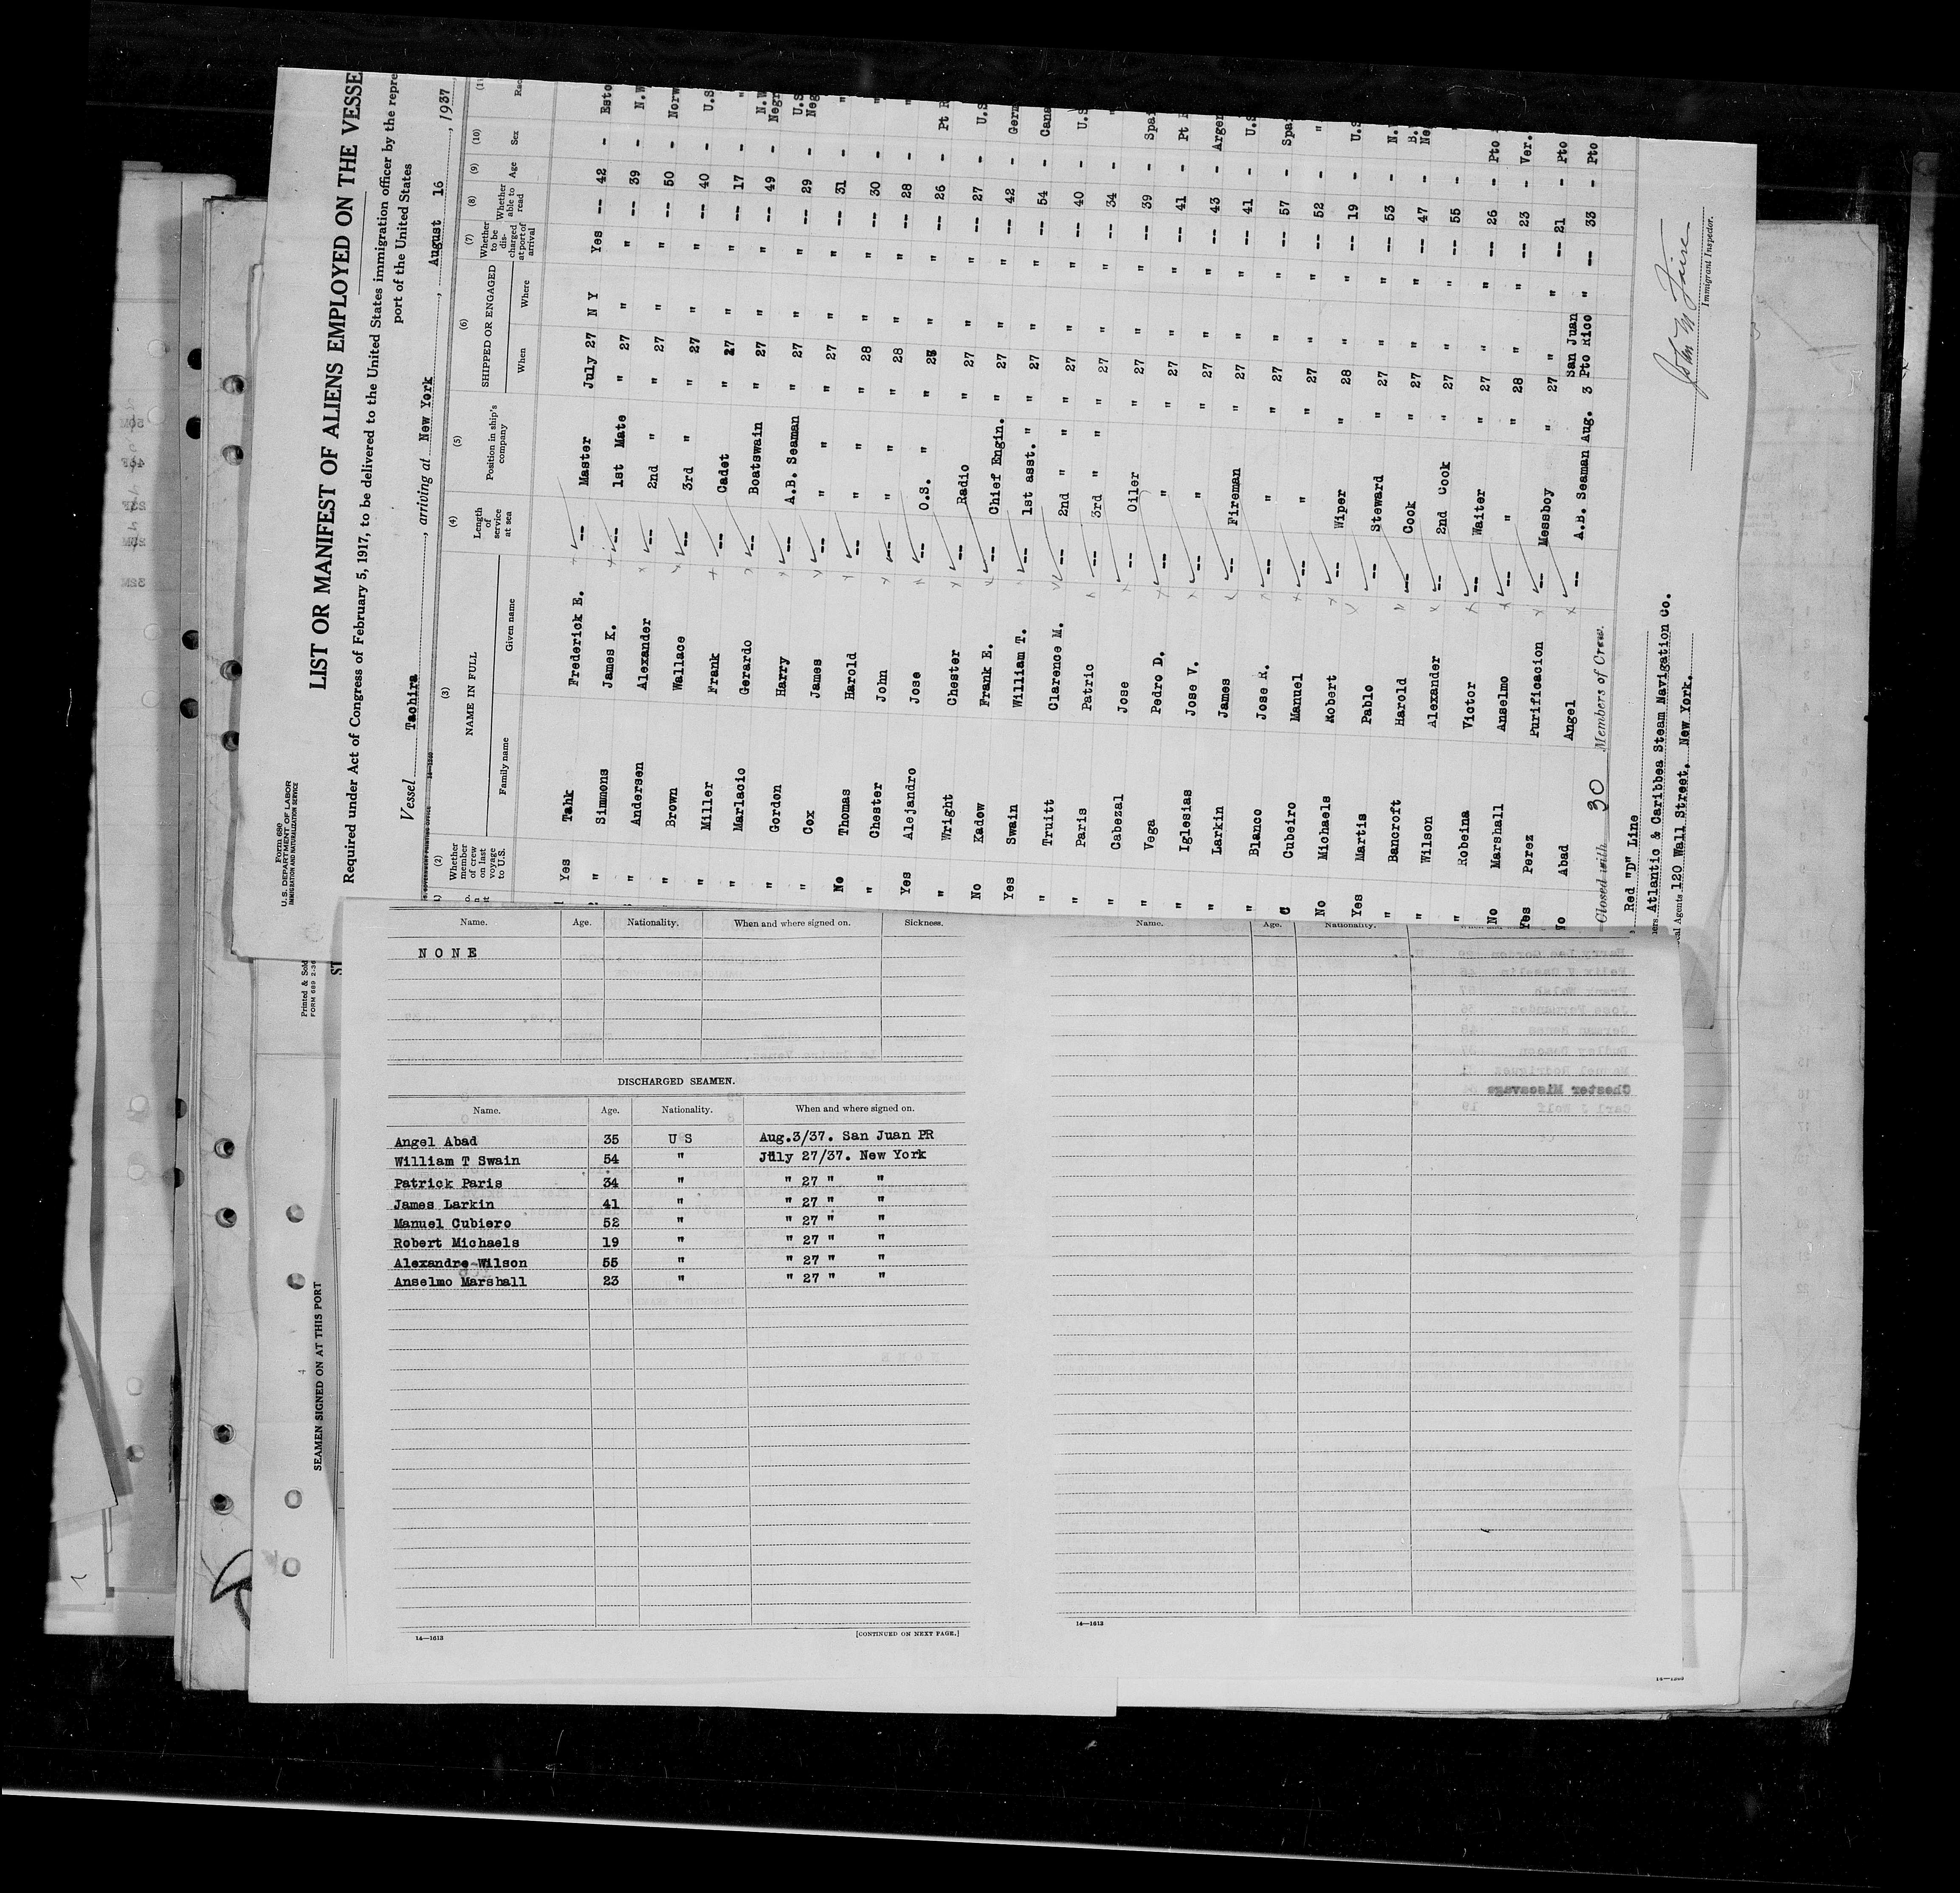 Form 680
U. S. DEPARTMENT OF LABOR
IMMIGRATION AND NATURALIZATION SERVICE
LIST OR MANIFEST OF ALIENS EMPLOYED ON THE VESSE
Required under Act of Congress of February 5, 1917, to be delivered to the United States immigration officer by the repre
port of the United States
Vessel Tachira, arriving at New York, August 16, 1937
(2) (3) (4) (5) (6) (7) (8) (9) (10)
Whether member of crew on last voyage to U.S. NAME IN FULL Family name Given name Length of service at sea Position in ship's company SHIPPED OR ENGAGED When Where Whether to be discharged at port of arrival Whether able to read Age Sex
Yes Tahk Frederick E. -- Master July 27 N Y Yes -- 42 -
" Simmons James K. -- 1st Mate " 27 " " -- 39 -
" Andersen Alexander -- 2nd " " 27 " " -- 50 -
" Brown Wallace -- 3rd " " 27 " " -- 40 -
" Miller Frank -- Cadet " 27 " " -- 17 -
" Marlacio Gerardo -- Boatswain " 27 " " -- 49 -
" Gordon Harry -- A.B. Seaman " 27 " " -- 29 -
" Cox James -- " " 27 " " -- 31 -
No Thomas Harold -- " " 28 " " -- 30 -
" Chester John -- " " 28 " " -- 28 -
Yes Alejandro Jose -- O.S. " " " " -- 26 -
" Wright Chester -- Radio " 27 " " -- 27 -
No Kadow Frank E. -- Chief Engin. " 27 " " -- 42 -
Yes Swain William T. -- 1st asst. " " 27 " " -- 54 -
" Truitt Clarence M. -- 2nd " " " 27 " " -- 40 -
" Paris Patric -- 3rd " " " 27 " " -- 34 -
" Cabezal Jose -- Oiler " 27 " " -- 39 -
" Vega Pedro D. -- " " 27 " " -- 41 -
" Iglesias Jose V. -- " " 27 " " -- 43 -
" Larkin James -- Fireman " 27 " " -- 41 -
" Blanco Jose R. -- " " 27 " " -- 57 -
Cubeiro Manuel -- " " 27 " " -- 52 -
No Michaels Robert -- Wiper " 28 " " -- 19 -
Yes Martis Pablo -- Steward " 27 " " -- 53 -
" Bancroft Harold -- Cook " 27 " " -- 47 -
" Wilson Alexander -- 2nd Cook " 27 " " -- 55 -
" Robeina Victor -- Waiter " 27 " " -- 26 -
No Marshall Anselmo -- " " 28 " " -- 23 -
Yes Perez Purificacion -- Messboy " 27 " " -- 21 -
No Abad Angel -- A.B. Seaman Aug. 3 San Juan Pto Rico " -- 33 -
Closed with 30 Members of Crew.
Red "D" Line
Atlantic & Caribbea Steam Navigation Co.
Agents 120 Wall Street, New York.
Immigrant Inspector.
Printed & Sold
FORM 689 2-36
SEAMEN SIGNED ON AT THIS PORT
4
Name. Age. Nationality. When and where signed on. Sickness.
N O N E
DISCHARGED SEAMEN.
Name. Age. Nationality. When and where signed on.
Angel Abad 35 U S Aug.3/37. San Juan PR
William T Swain 54 " July 27/37. New York
Patrick Paris 34 " " 27 " "
James Larkin 41 " " 27 " "
Manuel Cubiero 52 " " 27 " "
Robert Michaels 19 " " 27 " "
Alexandre Wilson 55 " " 27 " "
Anselmo Marshall 23 " " 27 " "
14—1613
[CONTINUED ON NEXT PAGE.]
Name. Age. Nationality.
14—1613